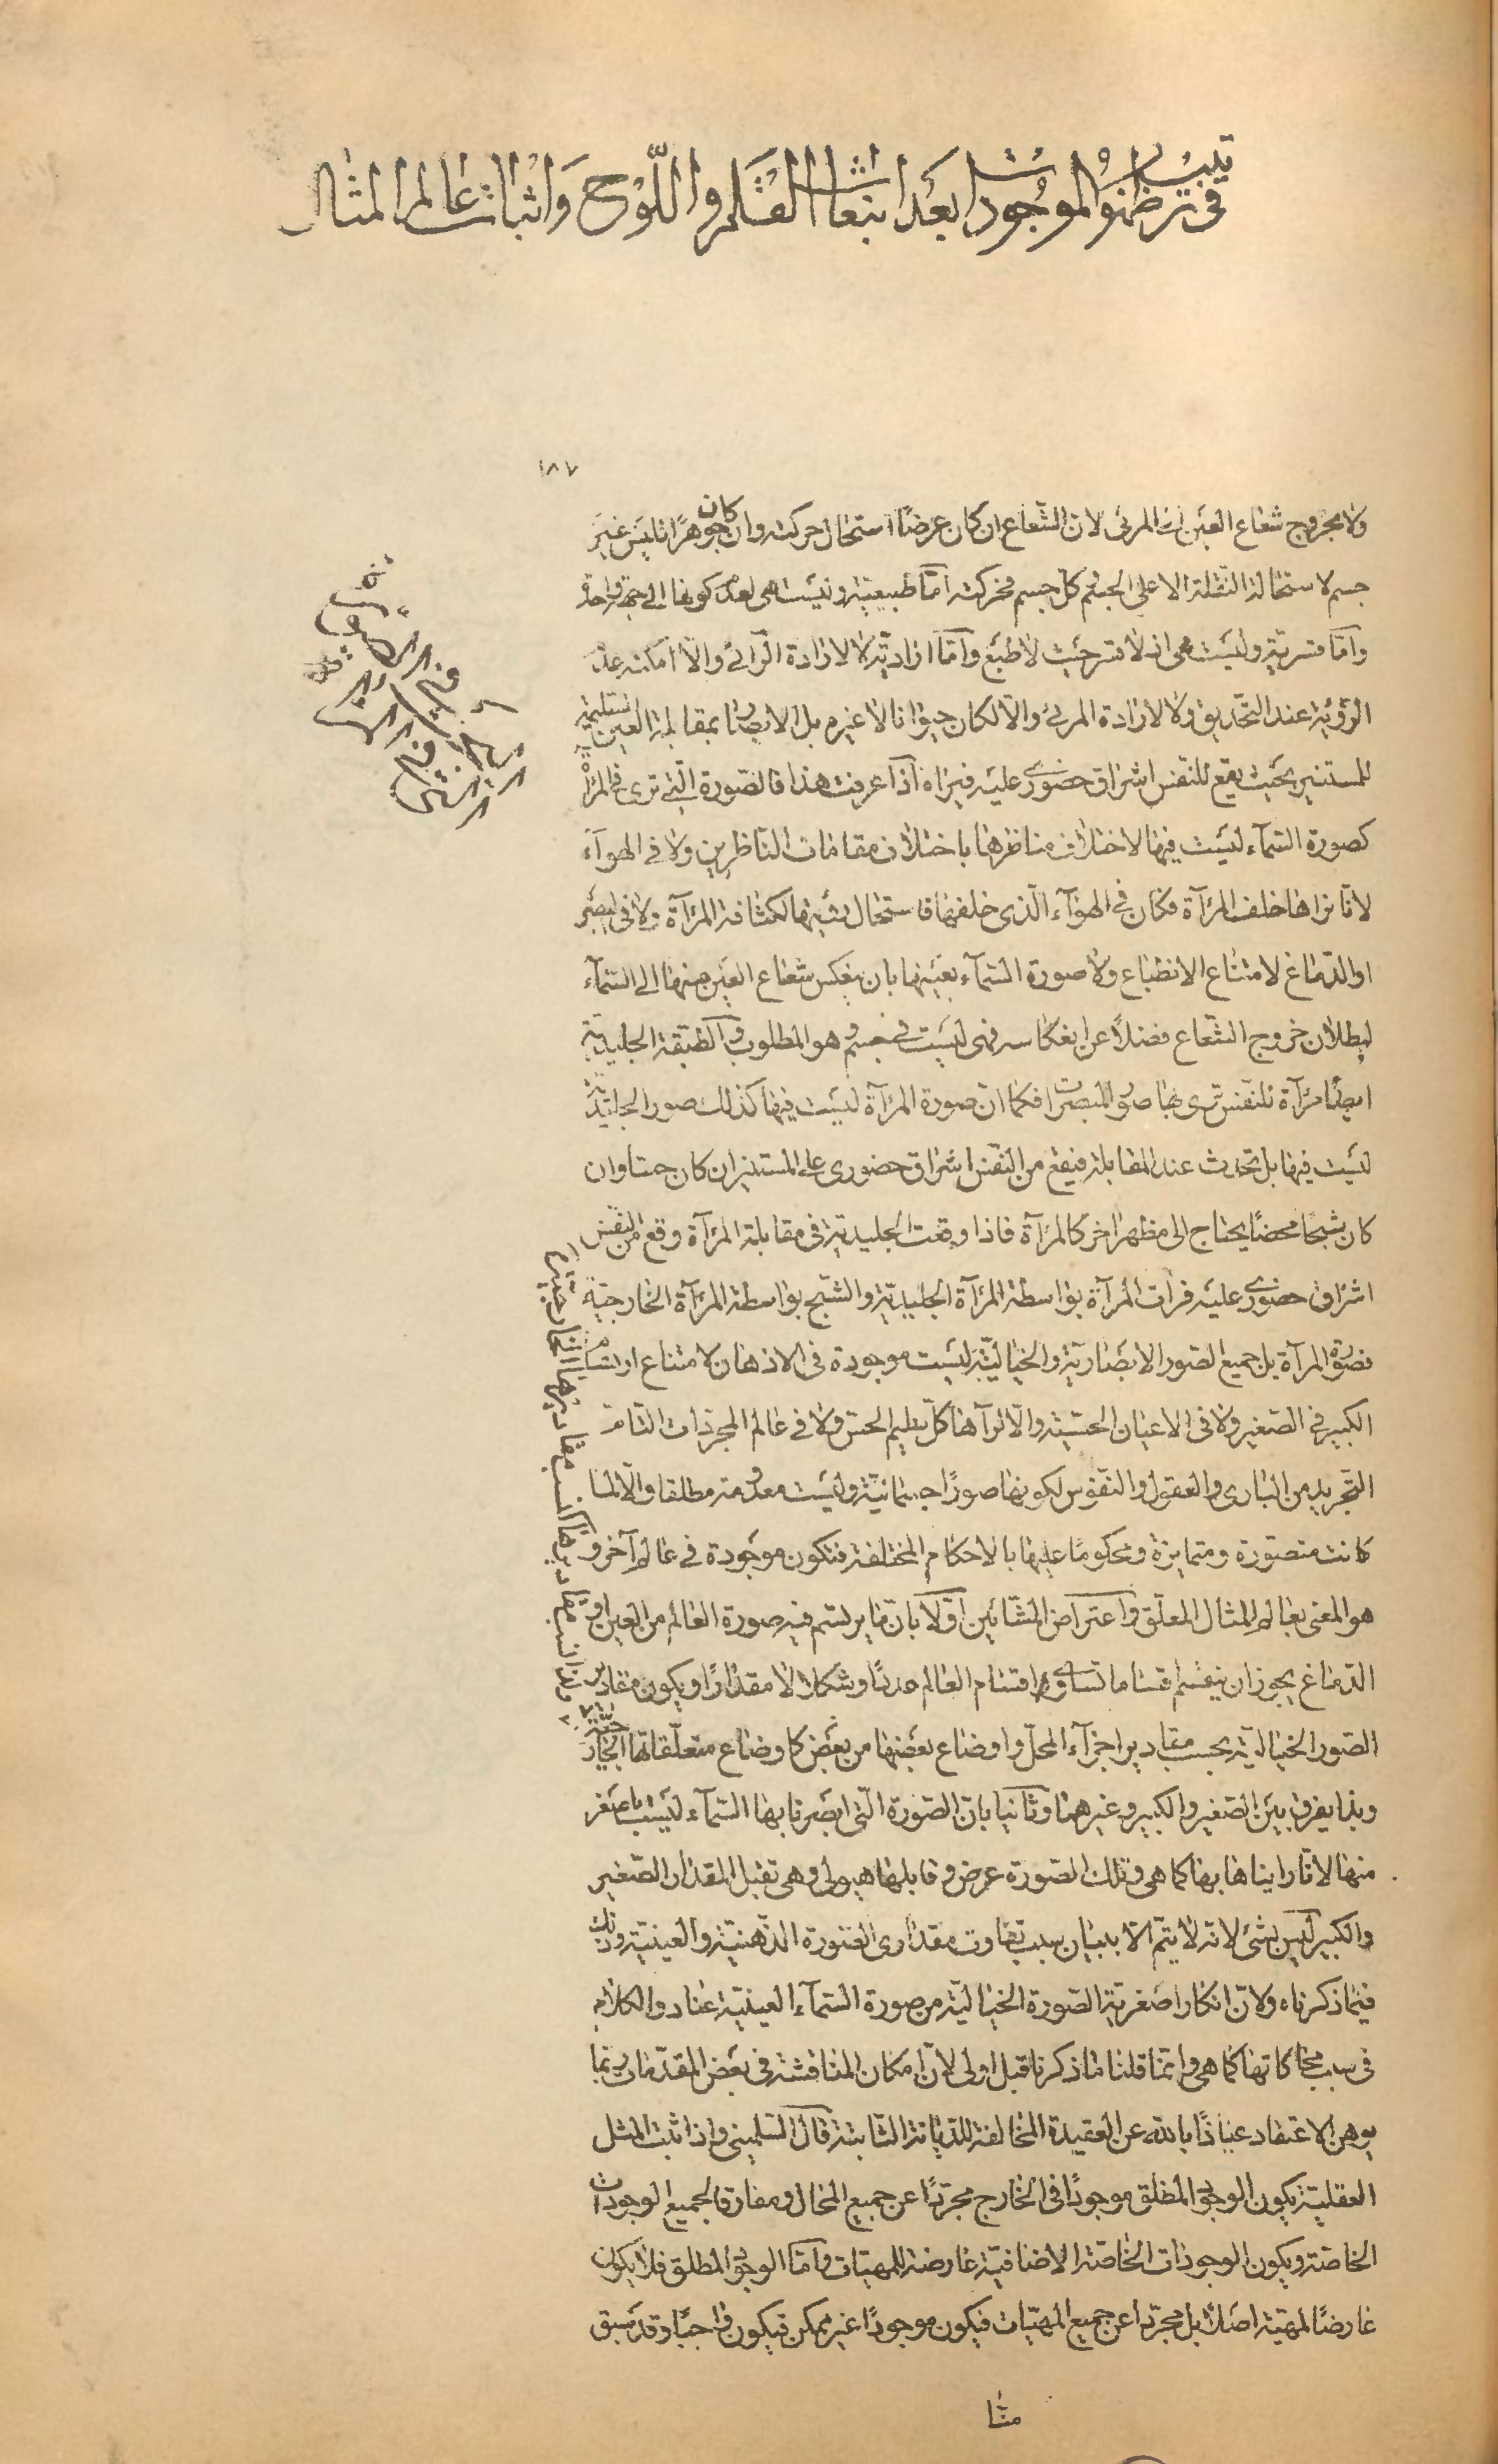 في ترتيب نظم الموجودات بعد انبعاث القلم واللوح واثبات عالم المثال
١٨٧
ولا بخروج شعاع العين الى المرئى لان الشعاع ان كان عرضا استحال حركته وان كان جوهرا فليس غير
جسم لاستحالة النقلة الا على الجسم وكل جسم فحركته اما طبيعية وليست هى لعدم كونها الى جهة واحدة
واما قسرية وليست هى اذ لا قسر حيث لا طبع واما ارادية لا لارادة الرائى والا امكنه عدم
الرؤية عند التحديق ولا لارادة المرئى والا لكان حيوانا لا غيره بل الابصار بمقابلة العين السليمة
للمستنير بحيث يقع للنفس اشراق حضورى عليه فيراه اذا عرفت هذا فالصورة التى ترى فى المرآة
كصورة السماء ليست فيها لاختلاف مناظرها باختلاف مقامات الناظرين ولا فى الهواء
لانا نراها خلف المرآة فكان فى الهواء الذى خلفها فاستحال رؤيتها لكثافة المرآة ولا فى البصر
او الدماغ لامتناع الانطباع ولا صورة السماء بعينها بان ينعكس شعاع العين منها الى السماء
لبطلان خروج الشعاع فضلا عن انعكاسه فهى ليست فى جسم وهو المطلوب والطبقة الجليدية
ايضا مرآة للنفس ترى بها صور المبصرات فكما ان صورة المرآة ليست فيها كذلك صور الجليدية
ليست فيها بل تحدث عند المقابلة فيقع من النفس اشراق حضورى على المستنير ان كان جسما وان
كان شبحا محضا يحتاج الى مظهر اخر كالمرآة فاذا وقعت الجليدية فى مقابلة المرآة وقع من النفس
اشراق حضورى عليه فرأت المرآة بواسطة المرآة الجليدية والشبح بواسطة المرآة الخارجية
فصورة المرآة بل جميع الصور الابصارية والخيالية ليست موجودة فى الاذهان لامتناع ارتسام
الكبير فى الصغير ولا فى الاعيان الحسية والا لرآها كل سليم الحس ولا فى عالم المجردات التامة
التجريد من البارى والعقول والنفوس لكونها صورا جسمانية وليست معدومة مطلقا والا لما
كانت متصورة ومتمايزة ومحكوما عليها بالاحكام المختلفة فتكون موجودة فى عالم آخر و
هو المعنى بعالم المثال المعلق واعتراض المشائين اولا بان ما يرتسم فيه صورة العالم من العين او
الدماغ يجوز ان ينقسم اقساما تساوى اقسام العالم عددا وشكلا لا مقدارا ويكون مقادير
الصور الخيالية بحسب مقادير اجزاء المحل واوضاع بعضها من بعض كاوضاع متعلقاتها الخارجية
وبذا يفرق بين الصغير والكبير وغيرهما وثانيا بان الصورة التى ابصرنا بها السماء ليست باصغر
منها لانا رايناها بها كما هى وتلك الصورة عرض وقابلها هيولى وهى تقبل المقدار الصغير
والكبير ليس بشئ لانه لا يتم الا ببيان سبب تفاوت مقدارى الصورة الذهنية والعينية وذلك
فيما ذكرناه ولان انكار اصغرية الصورة الخيالية من صورة السماء العينية عناد والكلام
فى سبب محاكاتها كما هى وانما قلنا ما ذكرنا قبل اولى لان امكان المناقشة فى بعض المقدمات ربما
يوهن الاعتقاد عياذا بالله عن العقيدة المخالفة للديانة الثابتة قال السليمنى واذا ثبت المثل
العقلية يكون الوجود المطلق موجودا فى الخارج مجردا عن جميع المحال ومفارقا لجميع الوجودات
الخاصة ويكون الوجودات الخاصة الاضافية عارضة للمهيات واما الوجود المطلق فلا يكون
عارضا لمهية اصلا بل مجردا عن جميع المهيات فيكون موجودا غير ممكن فيكون واجبا وقد سبق
منا